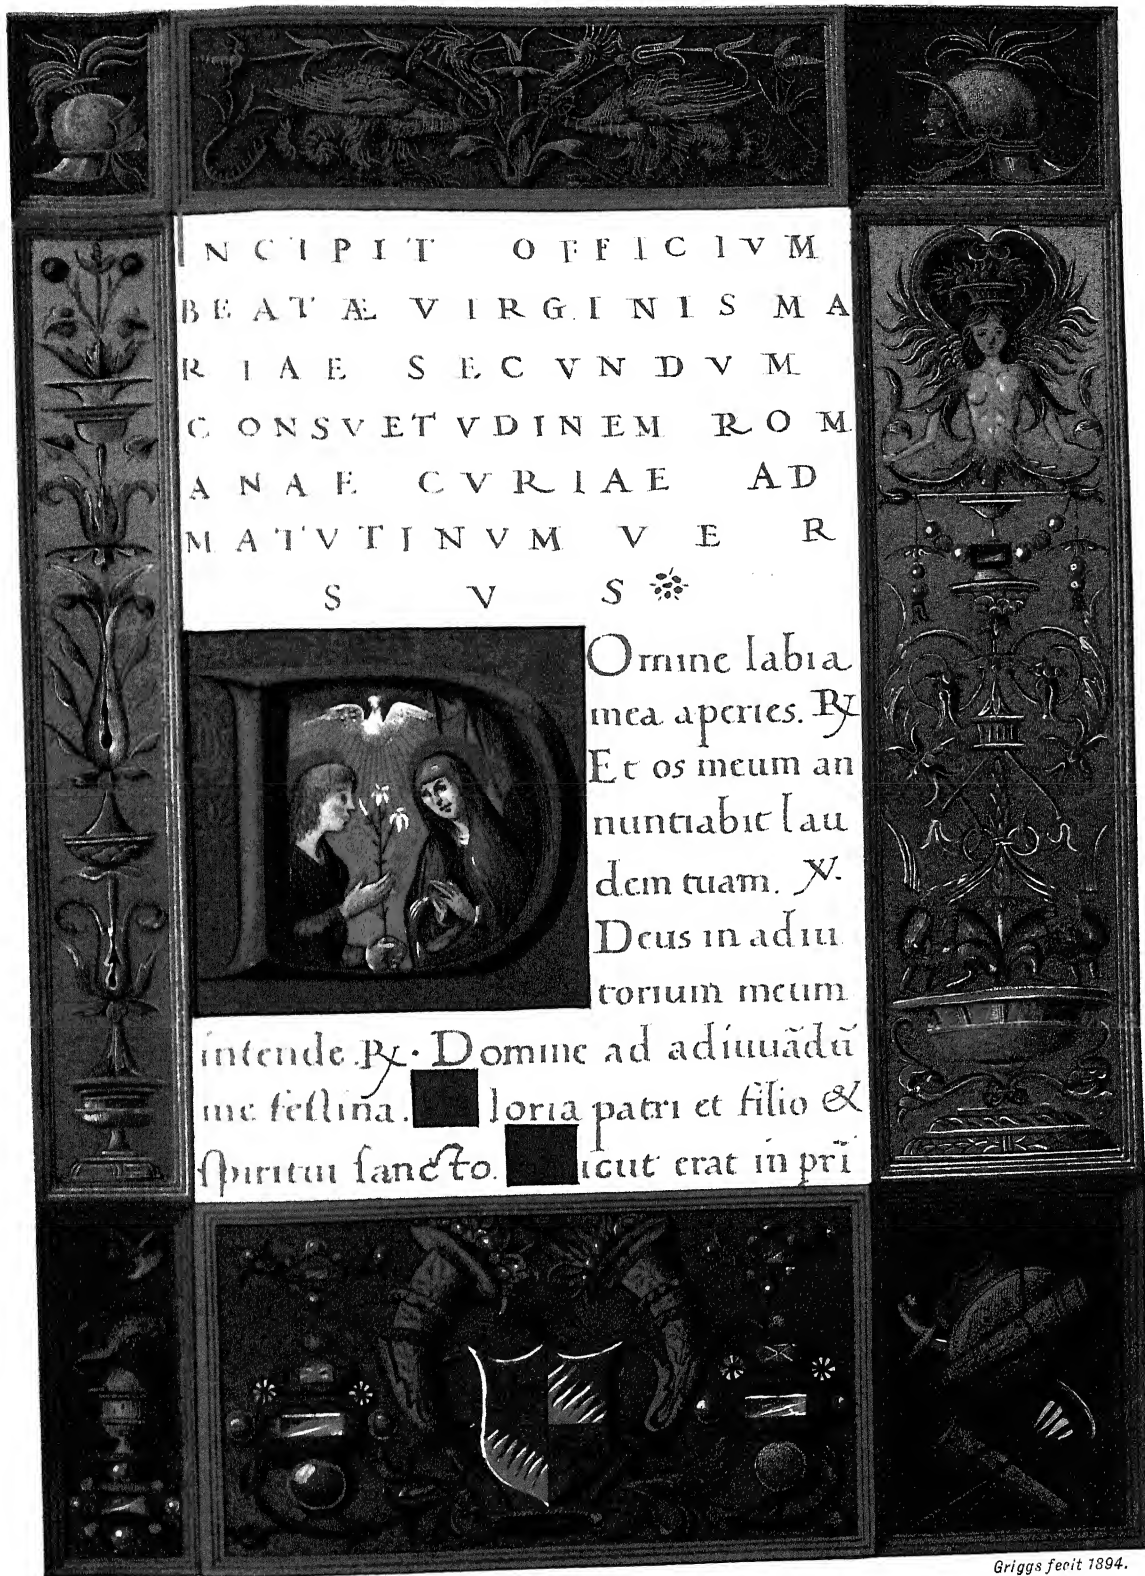 INCIPIT OFFICIVM
BEATÆ VIRGINIS MA
RIAE SECVNDVM
CONSVETVDINEM ROM
ANAE CVRIAE AD
MATVTINVM VER
SVS
DOmine labia
mea aperies. ℟
Et os meum an
nuntiabit lau
dem tuam. ℣.
Deus in adiu
torium meum
intende. ℟. Domine ad adiuuãdũ
me feſtina. Gloria patri et filio &
ſpiritui ſancto. Sicut erat in pri̅
Griggs fecit 1894.